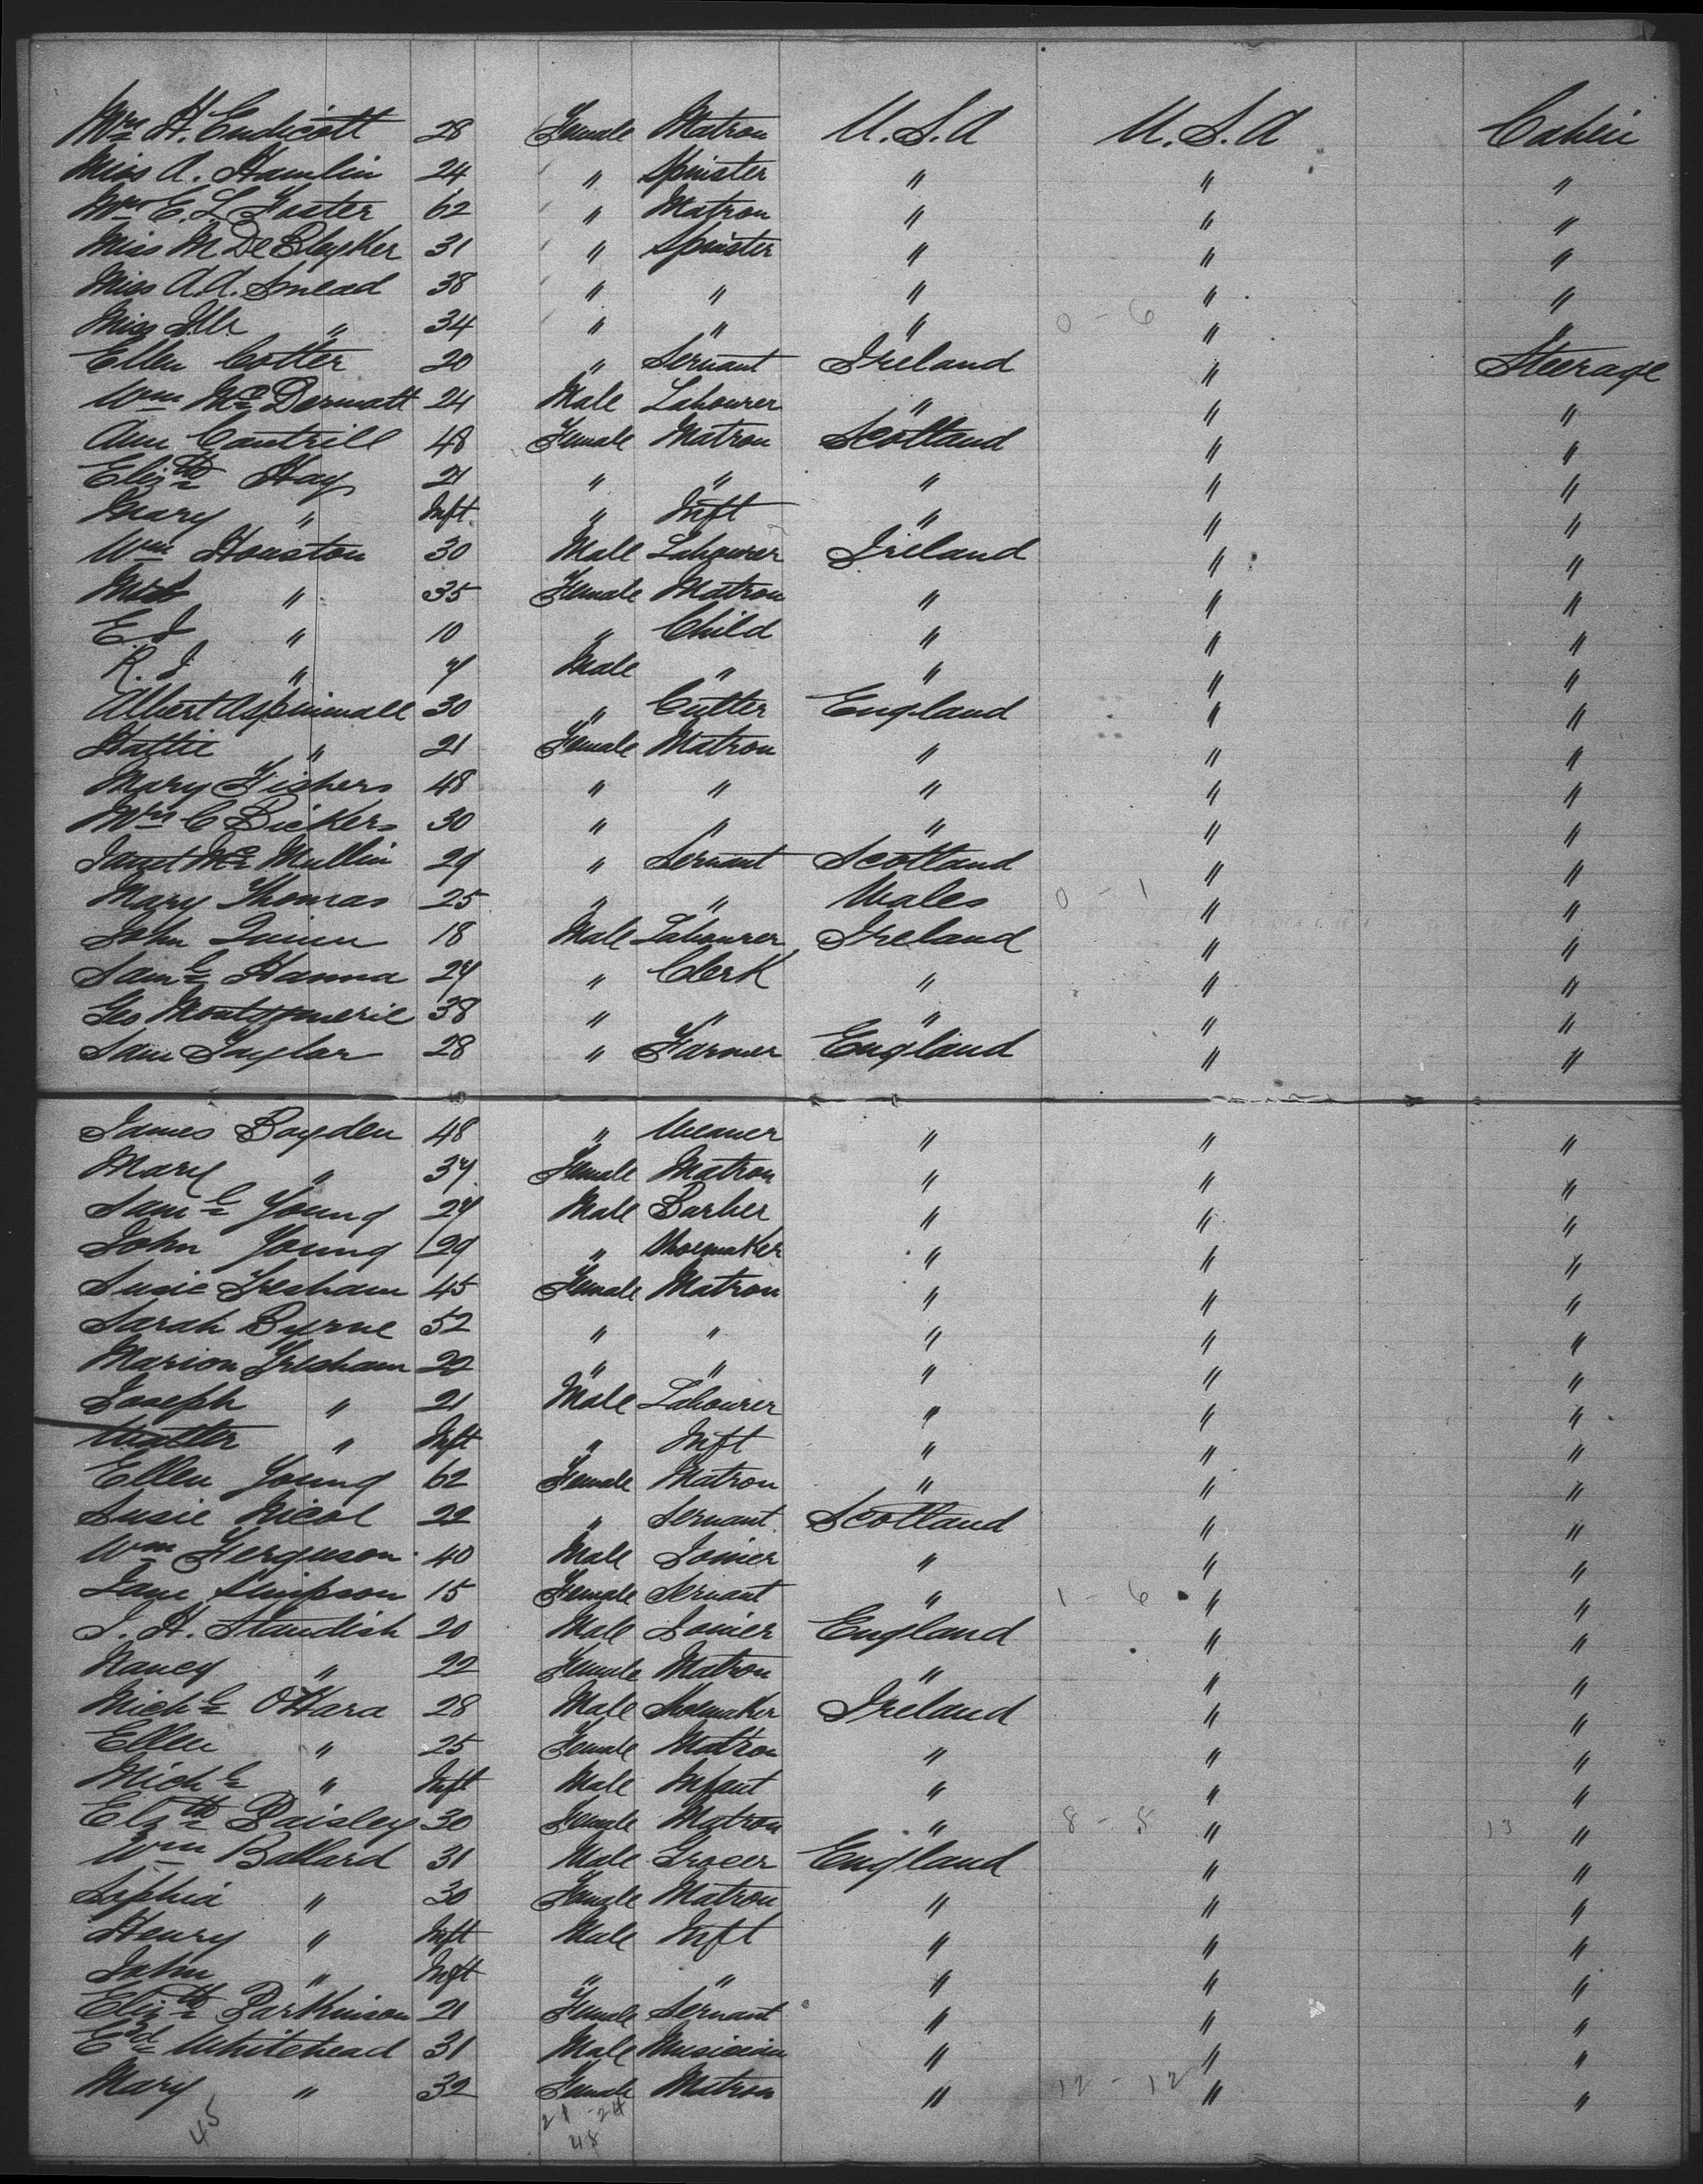 Mrs H. Endicott 28 Female Matron U.S.A U.S.A Cabin
Miss A. Hamlin 24 " Spinster " " "
Mrs E. L. Foster 62 " Matron " " "
Miss M De Bleyker 31 " Spinster " " "
Miss A. A. Smead 38 " " " " "
Miss " 34 " " " 0 - 6 " "
Ellen Cotter 20 " Servant Ireland " Steerage
Wm McDermatt 24 Male Labourer " " "
Ann Cantrill 48 Female Matron Scotland " "
Elizth Hay 21 " " " " "
Mary " Inft " Inft " " "
Wm Houston 30 Male Labourer Ireland " "
Mrs " 35 Female Matron " " "
E. J " 10 " Child " " "
R. J " 7 Male " " " "
Albert Aspinwall 30 " Cutter England " "
Hattie " 21 Female Matron " " "
Mary Fishers 48 " " " " "
Mrs C Bickers 30 " " " " "
Janet McMullin 29 " Servant Scotland " "
Mary Thomas 25 " " Wales 0 - 1 " "
John Quinn 18 Male Labourer Ireland " "
Saml Hanna 27 " Clerk " " "
Geo Montgomerie 38 " " " " "
Sam Taylor 28 " Farmer England " "
James Boyden 48 " Weaver " " "
Mary " 37 Female Matron " " "
Saml Young 27 Male Barber " " "
John Young 29 " Shoemaker " " "
Susie Gresham 45 Female Matron " " "
Sarah Byrne 52 " " " " "
Marion Gresham 22 " " " " "
Joseph " 21 Male Labourer " " "
Walter " Inft " Inft " " "
Ellen Young 62 Female Matron " " "
Susie Nicol 22 " Servant Scotland " "
Wm Ferguson 40 Male Joiner " " "
Jane Simpson 15 Female Servant " 1 - 6 " "
J. H. Standish 20 Male Joiner England " "
Nancy " 22 Female Matron " " "
Michl O'Hara 28 Male Shoemaker Ireland " "
Ellen " 25 Female Matron " " "
Michl " Inft Male Infant " " "
Elzth Paisley 30 Female Matron " 8 - 5 " 13 "
Wm Ballard 31 Male Grocer England " "
Sophia " 30 Female Matron " " "
Henry " Inft Male Inft " " "
John " Inft " " " " "
Elizth Parkinson 21 Female Servant " " "
Ed Whitehead 31 Male Musician " " "
Mary " 32 Female Matron " 12 - 12 " "
45 21 - 24
48